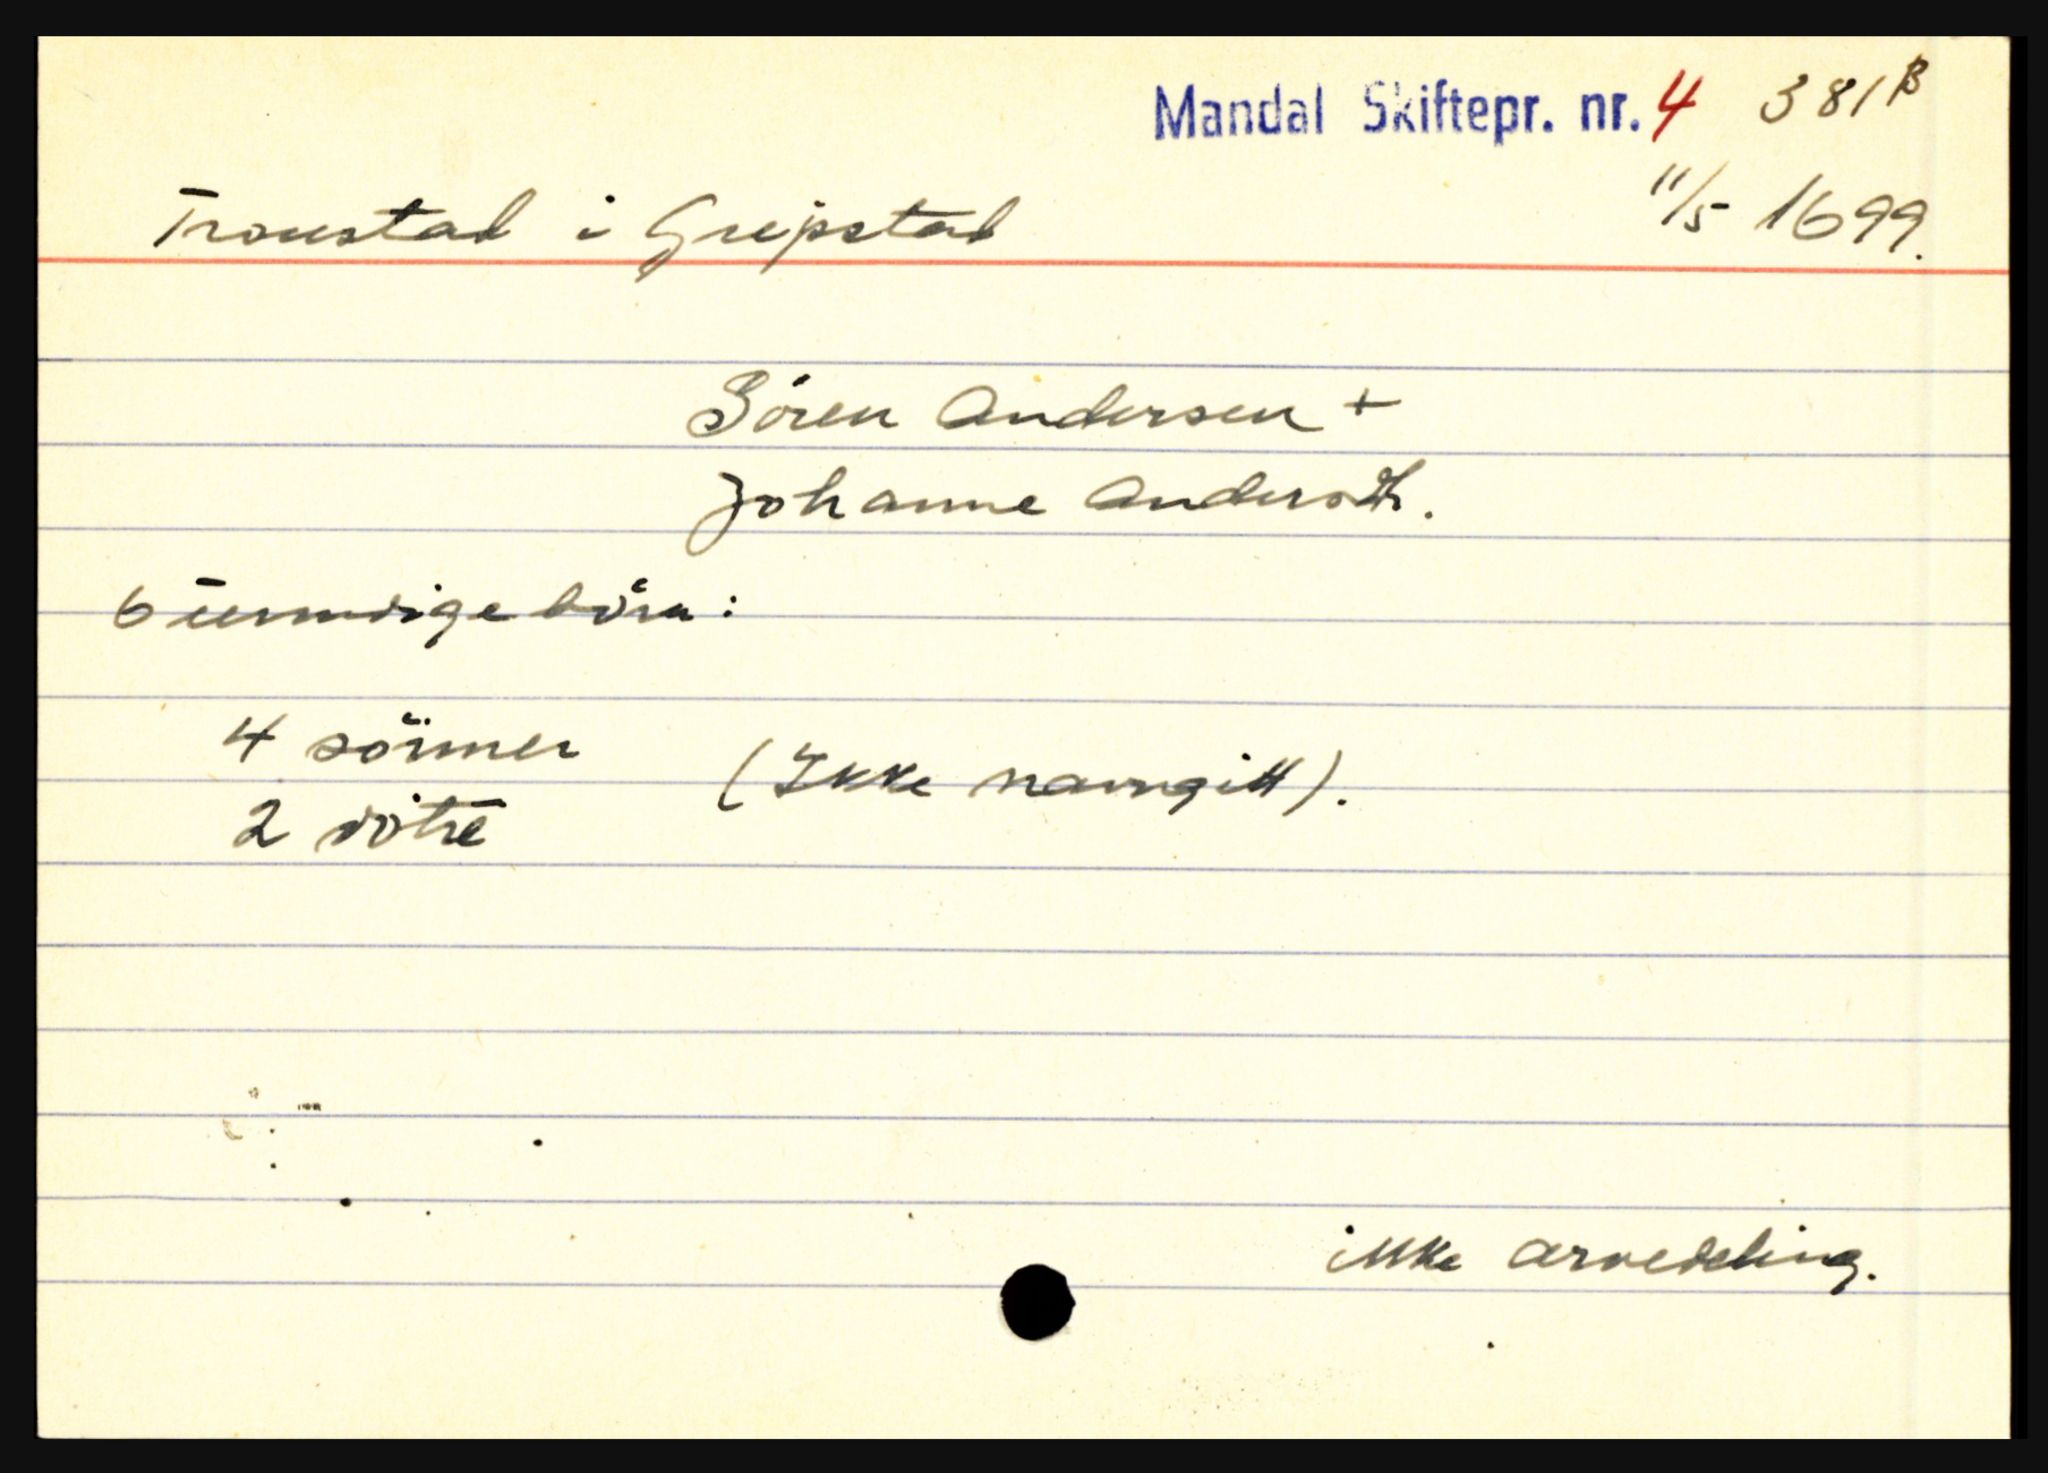 Mandal Skiftepr. nr. 4 381 B
11/5 1699.
Tronstad i Greipstad
Sören Andersen +
Johanne Andersdt.
6 umndige börn:
4 sönner
2 dötre
(Ikke navngitt).
ikke arvedeling.